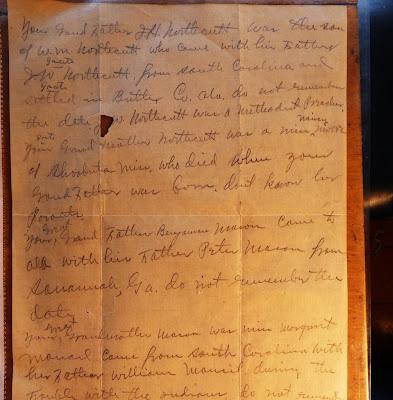 Your Grand Father J.H. Northcutt was the son
of W.M Northcutt who came with his Father
great
J.W Northcutt, from South Carolina and
great
settled in Butler Co. Ala, do not remember
the date J W Northcutt was a Methodist Preacher,
Your Grand Mother Northcutt was a miss
of Shubuta Miss, who died when your
Grand Father was born, don't know her
parents
great
Your Grand Father Benjamin Mason came to
ala with his Father Peter Mason from
Savannah, Ga. do not remember the
date
great
Your Grandmother Mason was miss Margaret
came from South Carolina with
her Father William during the
trouble with the indians, do not